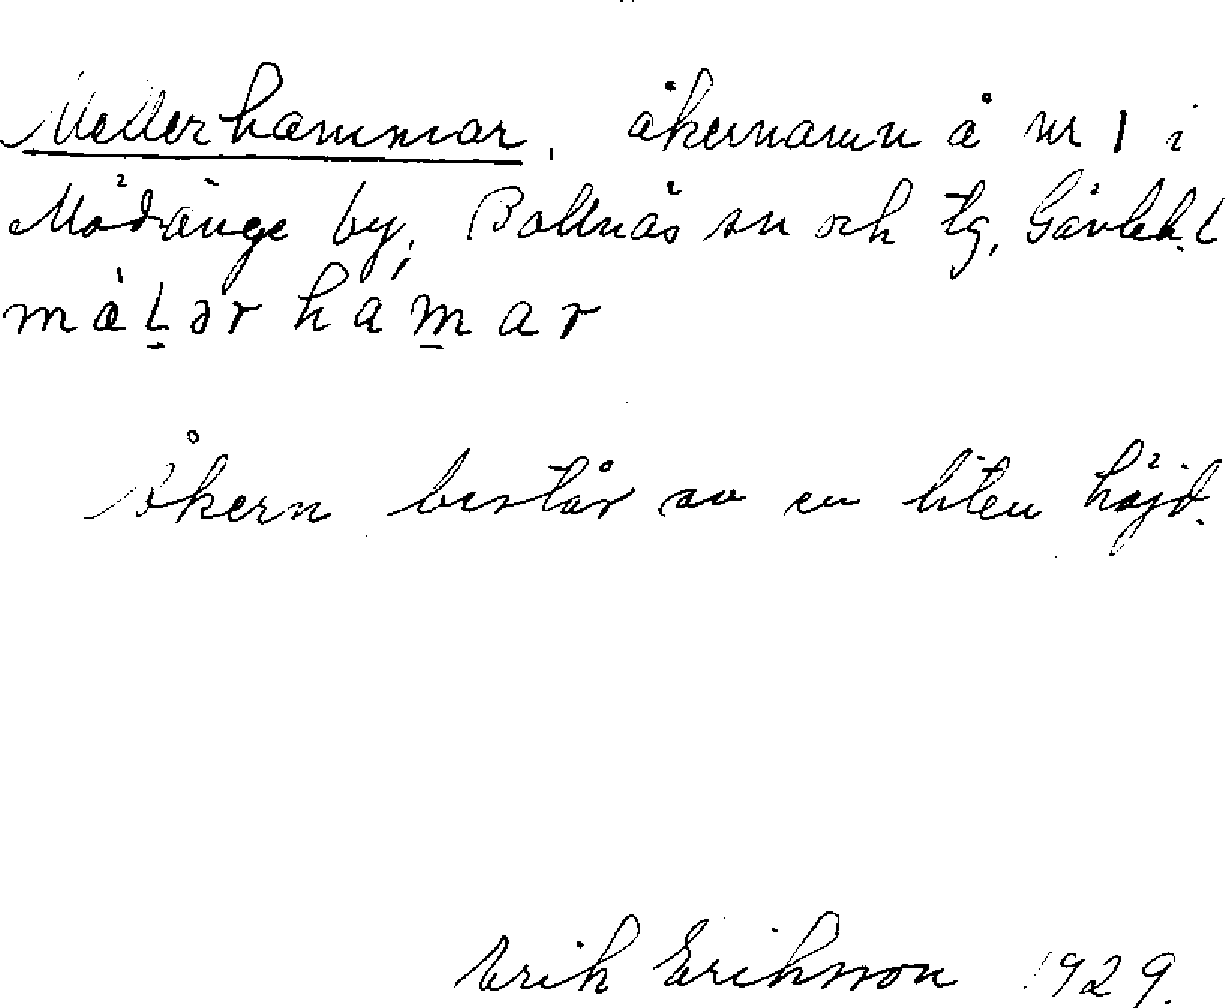 Mellerhammar, åkernamn å nr 1 i
Mödänge by, Bollnäs sn och tg, Gävleb. L
målər hamar
Åkern består av en liten höjd.
Erik Eriksson 1929.